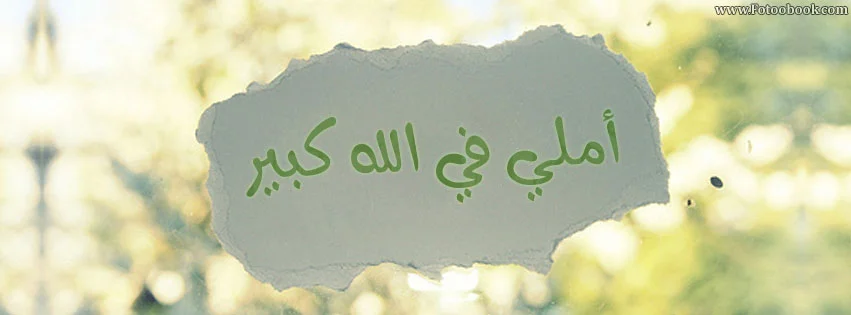 www.Fotoobook.com
أملي في الله كبير